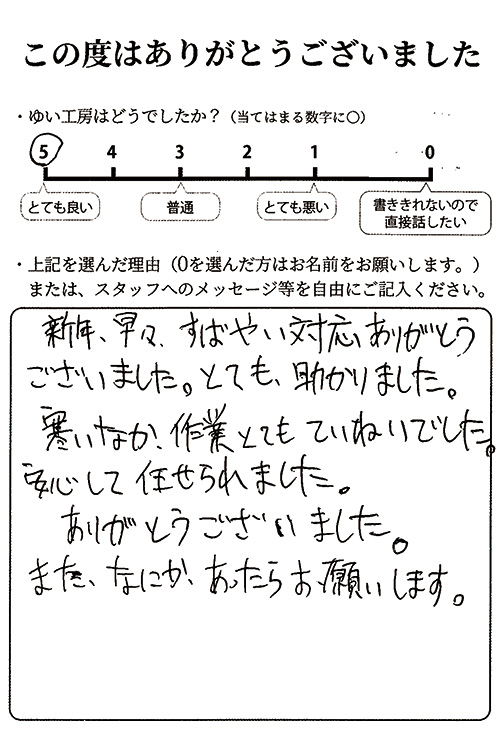 この度はありがとうございました
・ゆい工房はどうでしたか？（当てはまる数字に○）
5 4 3 2 1 0
とても良い 普通 とても悪い 書ききれないので
直接話したい
・上記を選んだ理由（0を選んだ方はお名前をお願いします。）
または、スタッフへのメッセージ等を自由にご記入ください。
新年、早々、すばやい対応、ありがとう
ございました。とても、助かりました。
寒いなか、作業とてもていねいでした。
安心して任せられました。
ありがとうございました。
また、なにか、あったらお願いします。